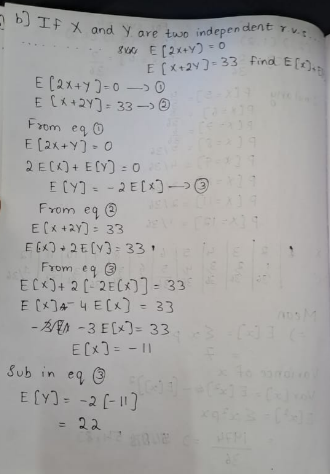 b] If X and Y are two independent r.v.s...
E[2x+y] = 0
E[x+2y] = 33 find E[x],
E[2x+y] = 0 → ①
E[x+2y] = 33 → ②
From eq ①
E[2x+y] = 0
2E[x] + E[y] = 0
E[y] = -2E[x] → ③
From eq ②
E[x+2y] = 33
E[x] + 2E[y] = 33
From eq ③
E[x] + 2[-2E[x]] = 33
E[x] - 4E[x] = 33
-3E[x] = 33
E[x] = -11
Sub in eq ③
E[y] = -2[-11]
= 22